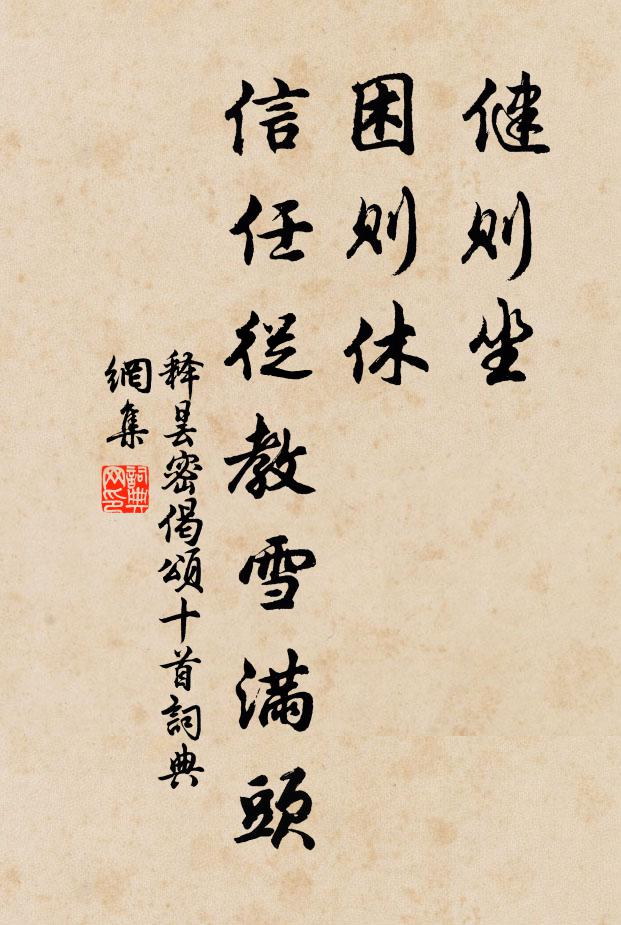 健則坐
困則休
信任從教雪滿頭
释昙密偈頌十首詞典
網集
詞典网印